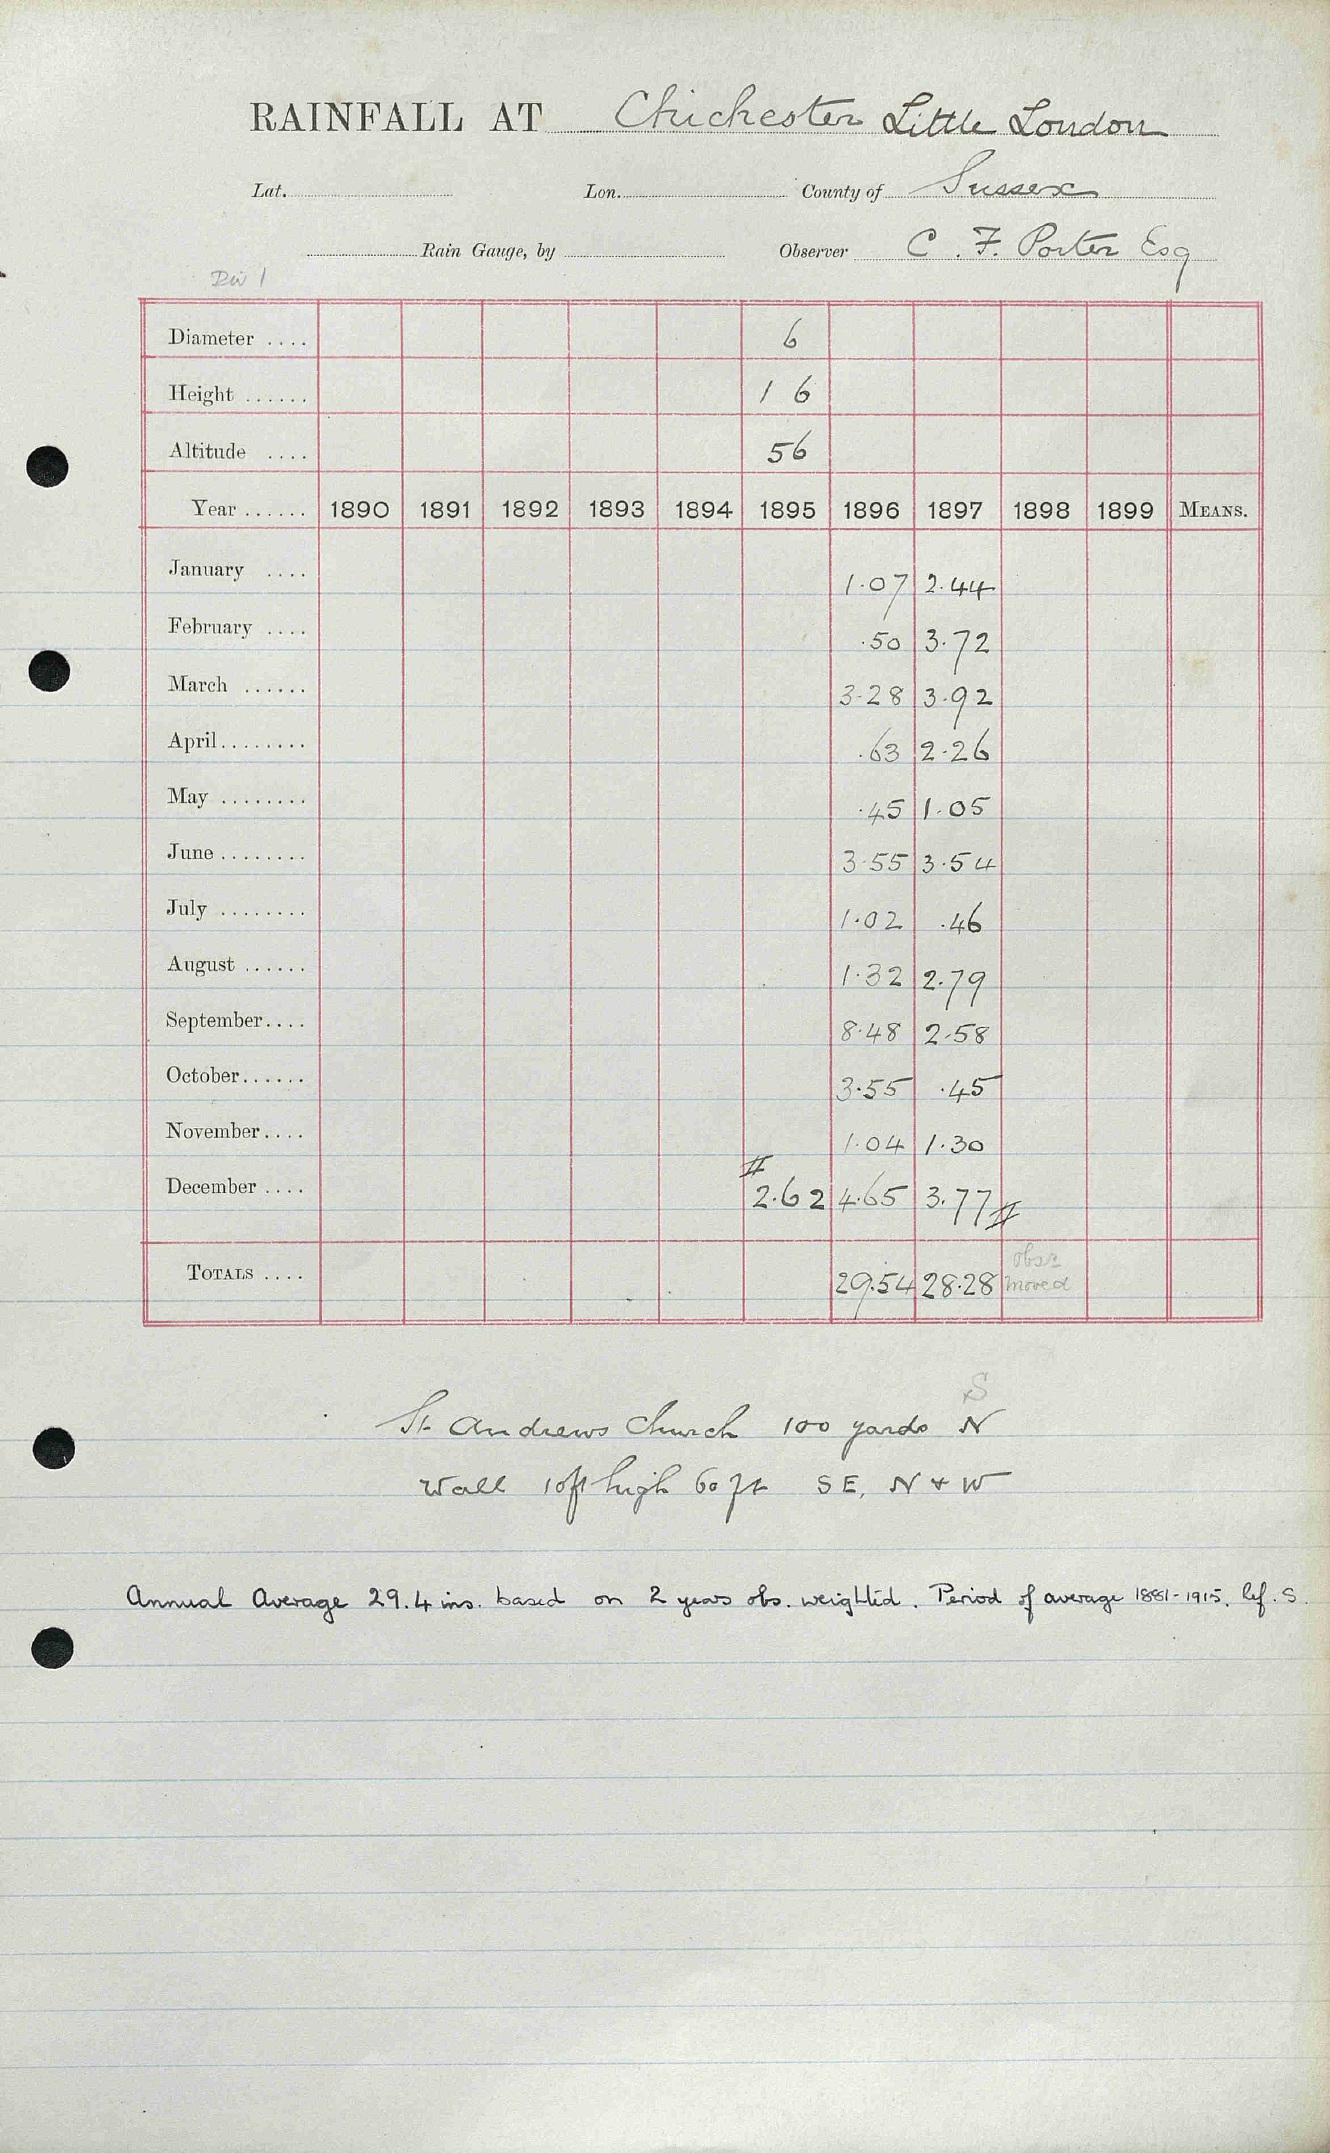 RAINFALL AT Chichester Little London
Lat. Lon. County of Sussex
Rain Gauge, by Observer C. F. Porter Esq
Div 1
Diameter .... 6
Height ...... 1 6
Altitude .... 56
Year ...... 1890 1891 1892 1893 1894 1895 1896 1897 1898 1899 MEANS.
January .... 1.07 2.44
February .... .50 3.72
March ...... 3.28 3.92
April ........ .63 2.26
May ........ .45 1.05
June ........ 3.55 3.54
July ........ 1.02 .46
August ...... 1.32 2.79
September .... 8.48 2.58
October ...... 3.55 .45
November .... 1.04 1.30
December .... 2.62 4.65 3.77
TOTALS .... 29.54 28.28 obsr moved
S
St Andrews Church 100 yards N
Wall 10ft high 60 ft SE, N + W
Annual Average 29.4 ins. based on 2 years obs. weighted. Period of average 1881-1915. Ref. S.